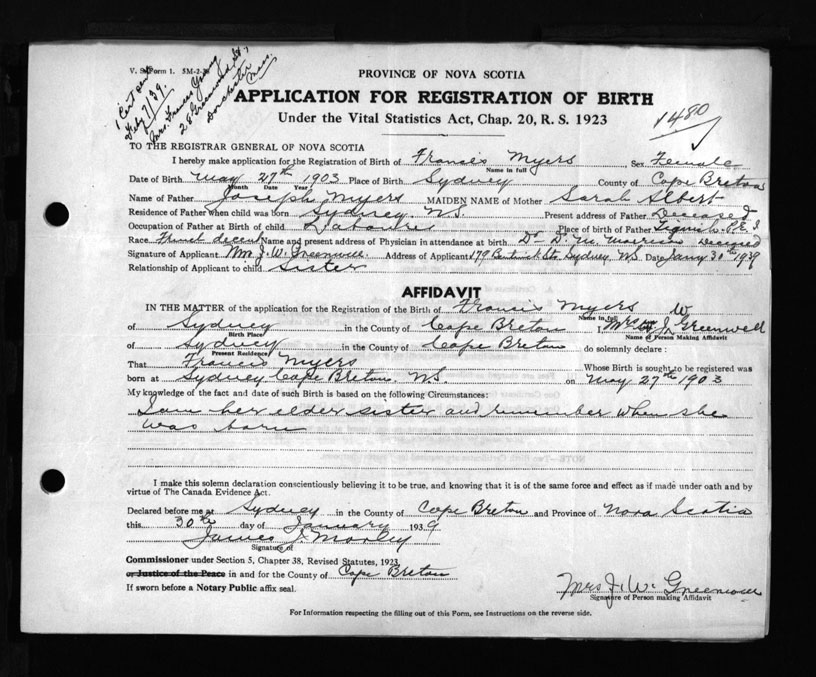 V. S. Form 1. 5M-2-
1 Cert sent
Feby 7/39.
Mrs. Frances Young
28 Greenwood St.,
Dorchester Mass.
PROVINCE OF NOVA SCOTIA
APPLICATION FOR REGISTRATION OF BIRTH
Under the Vital Statistics Act, Chap. 20, R. S. 1923
1480
TO THE REGISTRAR GENERAL OF NOVA SCOTIA
I hereby make application for the Registration of Birth of Francis Myers Sex Female
Name in full
Date of Birth May 27th 1903 Place of Birth Sydney County of Cape Breton
Month Date Year
Name of Father Joseph Myers MAIDEN NAME of Mother Sarah Albert
Residence of Father when child was born Sydney. N.S. Present address of Father Deceased
Occupation of Father at Birth of child Labourer Place of birth of Father Tignish. P.E.I
Race French decent Name and present address of Physician in attendance at birth Dr D. M. Morrison Deceased
Signature of Applicant Mrs J. W. Greenwell. Address of Applicant 179 Bentinck St. Sydney NS Date Jany 30th 1939
Relationship of Applicant to child Sister
AFFIDAVIT
IN THE MATTER of the application for the Registration of the Birth of Francis Myers
Name in full
of Sydney in the County of Cape Breton I Mrs J. W Greenwell
Birth Place Name of Person Making Affidavit
of Sydney of Cape Breton do solemnly declare :
Present Residence
That Francis Myers Whose Birth is sought to be registered was
born at Sydney Cape Breton. N.S. on May 27th 1903
My knowledge of the fact and date of such Birth is based on the following Circumstances:
I am her elder sister and remember when she
was born
I make this solemn declaration conscientiously believing it to be true, and knowing that it is of the same force and effect as if made under oath and by
virtue of The Canada Evidence Act.
Declared before me at Sydney in the County of Cape Breton and Province of Nova Scotia
this 30th day of January 1939
James J. Morley
Signature of
Commissioner under Section 5, Chapter 38, Revised Statutes, 1923
or Justice of the Peace in and for the County of Cape Breton
If sworn before a Notary Public affix seal.
Mrs J. W. Greenwell
Signature of Person making Affidavit
For Information respecting the filling out of this Form, see Instructions on the reverse side.